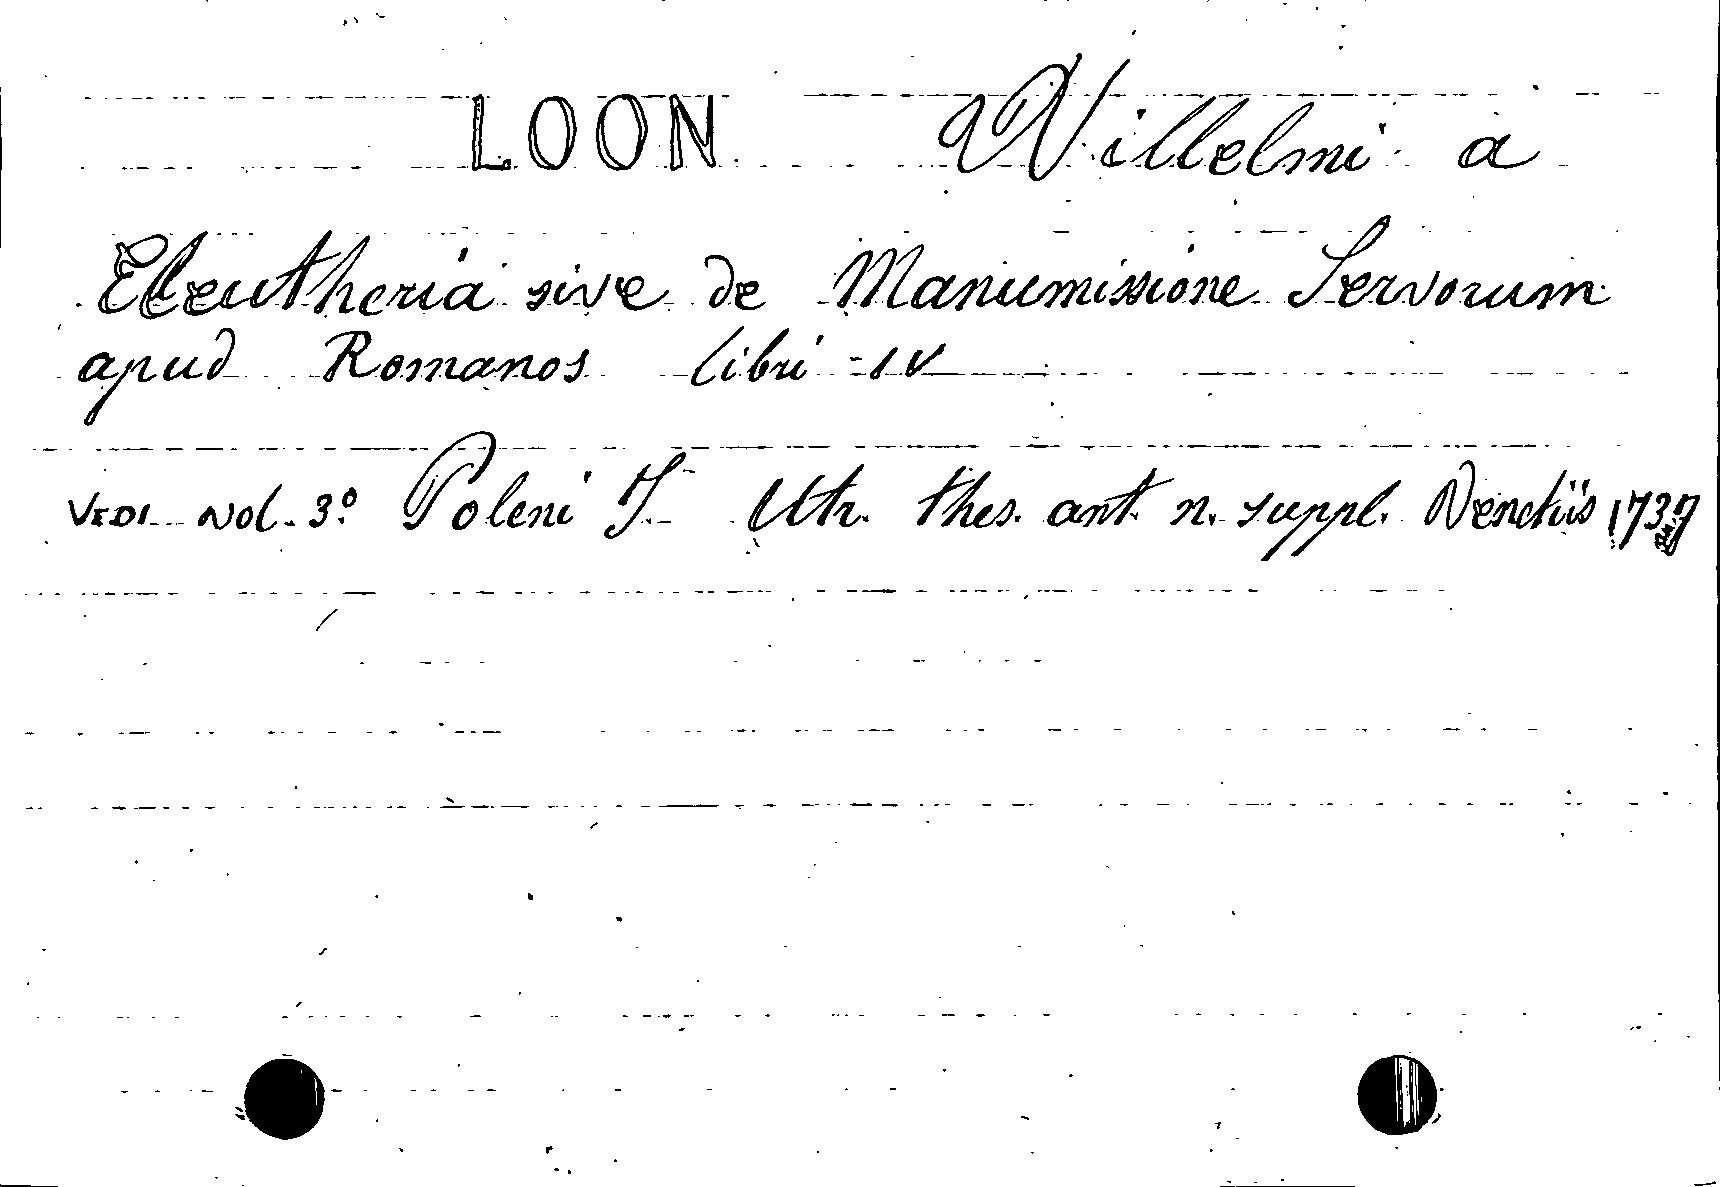 LOON Willelmi a
Eleutheria sive de Manumissione Servorum
apud Romanos libri IV
VEDI vol. 3º Poleni J. Utr. thes. ant. n. suppl. Venetiis 1737